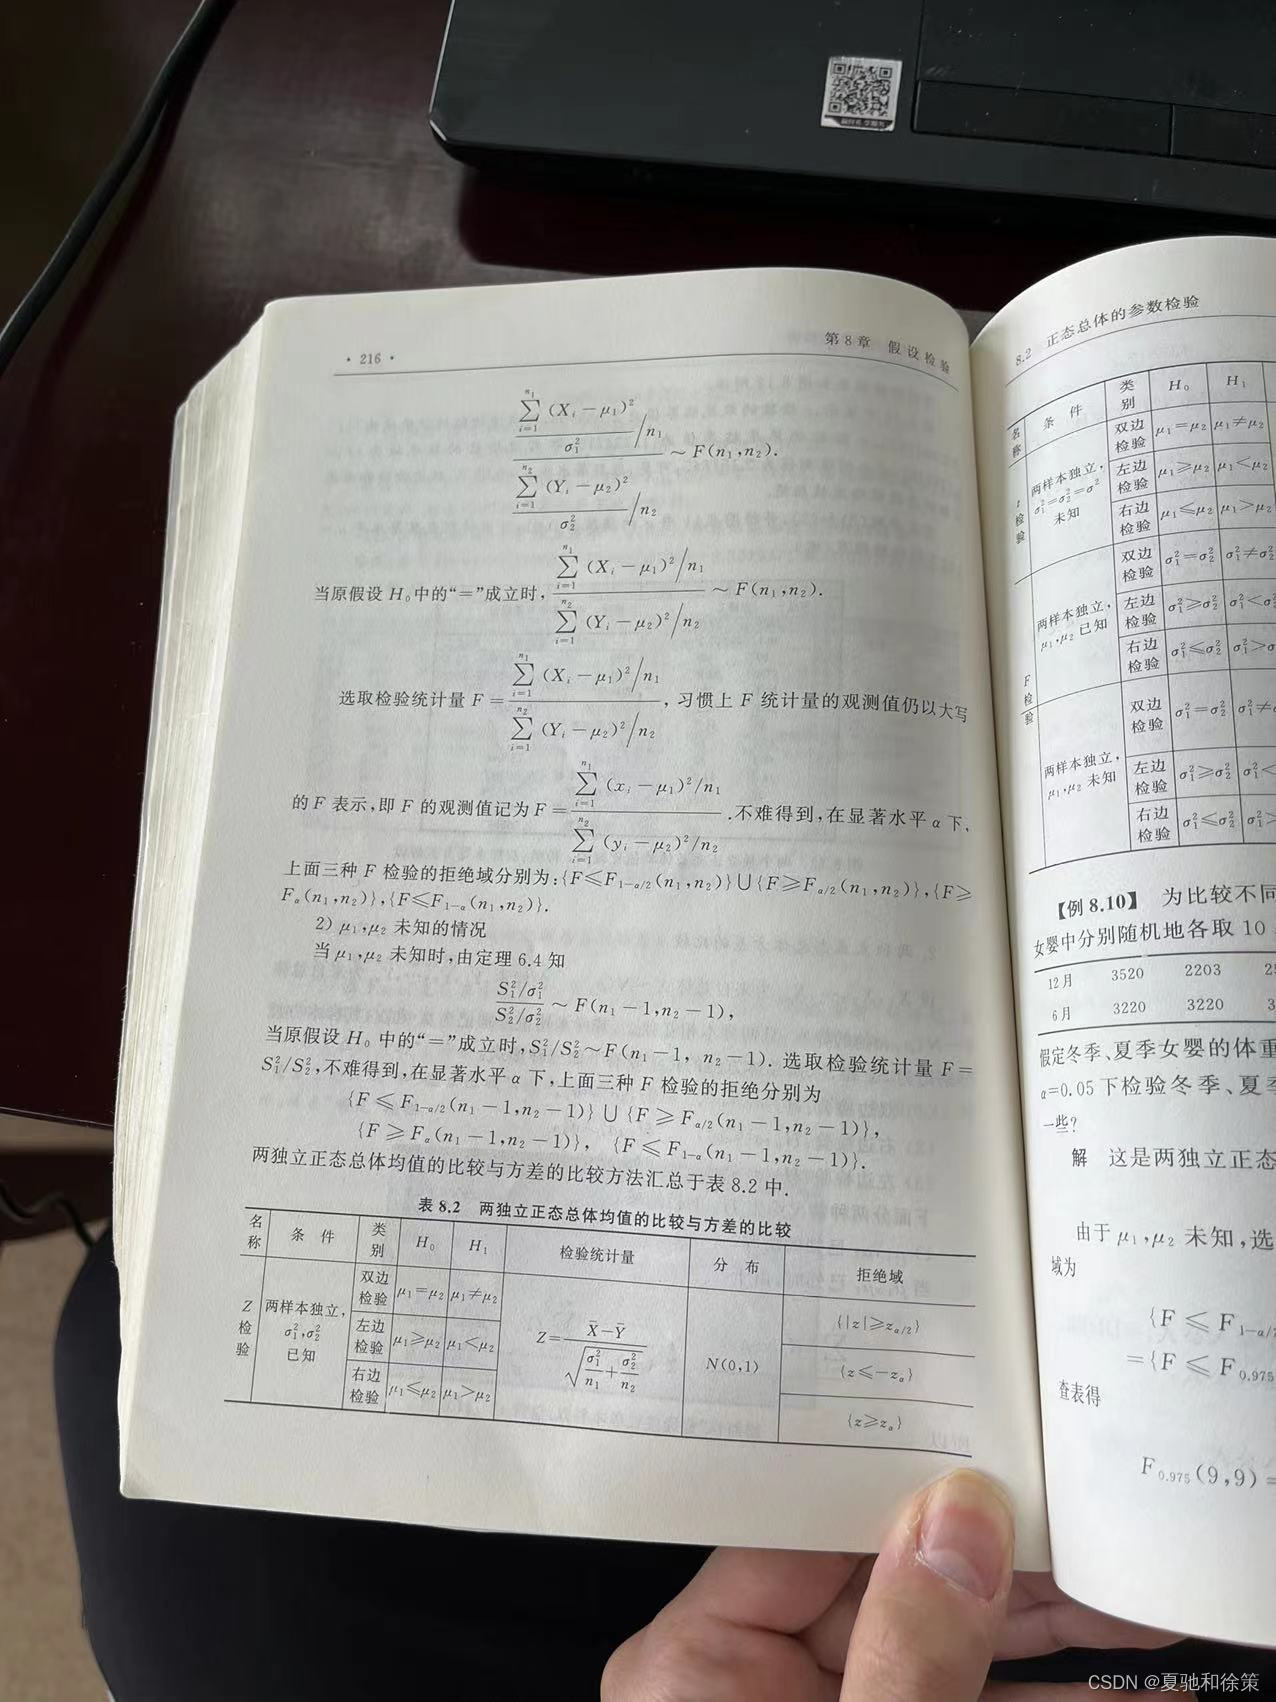 · 216 ·
第8章 假设检验
$$\frac{\frac{\sum_{i=1}^{n_1}(X_i-\mu_1)^2}{\sigma_1^2}/n_1}{\frac{\sum_{i=1}^{n_2}(Y_i-\mu_2)^2}{\sigma_2^2}/n_2}\sim F(n_1,n_2).$$
当原假设 H₀中的“=”成立时, $\frac{\sum_{i=1}^{n_1}(X_i-\mu_1)^2/n_1}{\sum_{i=1}^{n_2}(Y_i-\mu_2)^2/n_2}\sim F(n_1,n_2).$
选取检验统计量 F=$\frac{\sum_{i=1}^{n_1}(X_i-\mu_1)^2/n_1}{\sum_{i=1}^{n_2}(Y_i-\mu_2)^2/n_2}$, 习惯上 F 统计量的观测值仍以大写
的 F 表示,即 F 的观测值记为 F=$\frac{\sum_{i=1}^{n_1}(x_i-\mu_1)^2/n_1}{\sum_{i=1}^{n_2}(y_i-\mu_2)^2/n_2}$.不难得到,在显著水平 α 下,
上面三种 F 检验的拒绝域分别为:{F≤F₁₋α/₂(n₁,n₂)}∪{F≥Fα/₂(n₁,n₂)},{F≥
Fα(n₁,n₂)},{F≤F₁₋α(n₁,n₂)}.
2) μ₁,μ₂ 未知的情况
当 μ₁,μ₂ 未知时,由定理 6.4 知
$$\frac{S_1^2/\sigma_1^2}{S_2^2/\sigma_2^2}\sim F(n_1-1,n_2-1),$$
当原假设 H₀ 中的“=”成立时,S₁²/S₂²~F(n₁−1, n₂−1). 选取检验统计量 F=
S₁²/S₂²,不难得到,在显著水平 α 下,上面三种 F 检验的拒绝分别为
{F≤F₁₋α/₂(n₁−1,n₂−1)} ∪ {F≥Fα/₂(n₁−1,n₂−1)},
{F≥Fα(n₁−1,n₂−1)}, {F≤F₁₋α(n₁−1,n₂−1)}.
两独立正态总体均值的比较与方差的比较方法汇总于表 8.2 中.
表 8.2 两独立正态总体均值的比较与方差的比较
名称 条件 类别 H₀ H₁ 检验统计量 分布 拒绝域
Z检验 两样本独立, σ₁²,σ₂² 已知 双边检验 μ₁=μ₂ μ₁≠μ₂ $Z=\frac{\bar{X}-\bar{Y}}{\sqrt{\frac{\sigma_1^2}{n_1}+\frac{\sigma_2^2}{n_2}}}$ N(0,1) {|z|≥zα/₂}
左边检验 μ₁≥μ₂ μ₁<μ₂ {z≤−zα}
右边检验 μ₁≤μ₂ μ₁>μ₂ {z≥zα}
8.2 正态总体的参数检验
名称 条件 类别 H₀ H₁
t检验 两样本独立, σ₁²=σ₂²=σ² 未知 双边检验 μ₁=μ₂ μ₁≠μ₂
左边检验 μ₁≥μ₂ μ₁<μ₂
右边检验 μ₁≤μ₂ μ₁>μ₂
F检验 两样本独立, μ₁,μ₂ 已知 双边检验 σ₁²=σ₂² σ₁²≠σ₂²
左边检验 σ₁²≥σ₂² σ₁²<σ
右边检验 σ₁²≤σ₂² σ₁²>σ
两样本独立, μ₁,μ₂ 未知 双边检验 σ₁²=σ₂² σ₁²≠
左边检验 σ₁²≥σ₂² σ₁²<
右边检验 σ₁²≤σ₂² σ₁²>
【例 8.10】 为比较不同
女婴中分别随机地各取 10
12月 3520 2203
6月 3220 3220
假定冬季、夏季女婴的体重
α=0.05 下检验冬季、夏季
一些?
解 这是两独立正态
由于 μ₁,μ₂ 未知,选
域为
{F ≤ F₁₋α/
={F ≤ F₀.₉₇₅
查表得
F₀.₉₇₅(9,9)=
CSDN @夏驰和徐策